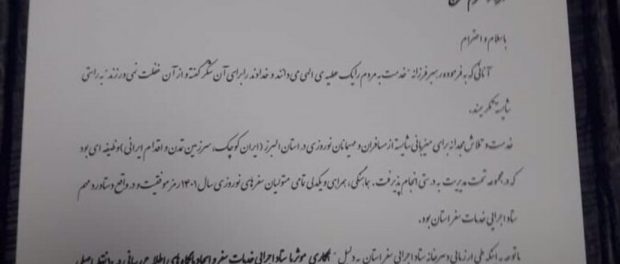 باسلام و احترام
آنانی که به فرموده رهبر فرزانه "خدمت به مردم را یک عطیه ی الهی می دانند و خداوند را برای آن شکر گفته و از آن غفلت نمی ورزند" به راستی
شایسته تکریمند.
خدمت و تلاش مجدانه برای میزبانی شایسته از مسافران و میهمانان نوروزی در استان البرز (ایران کوچک، سرزمین تمدن و اقوام ایرانی) وظیفه ای بود
که در مجموعه تحت مدیریت به درستی انجام پذیرفت. هماهنگی، همراهی و یکدلی تمامی متولیان سفرهای نوروزی سال ۱۴۰۱ رمز موفقیت و در واقع دستاورد مهم
ستاد اجرایی خدمات سفر استان بود.
باتوجه به اینکه طی ارزیابی دبیرخانه ستاد اجرایی سفر استان به دلیل " همکاری موثر با ستاد اجرایی خدمات سفر و ایجاد پایگاه های اطلاع رسانی